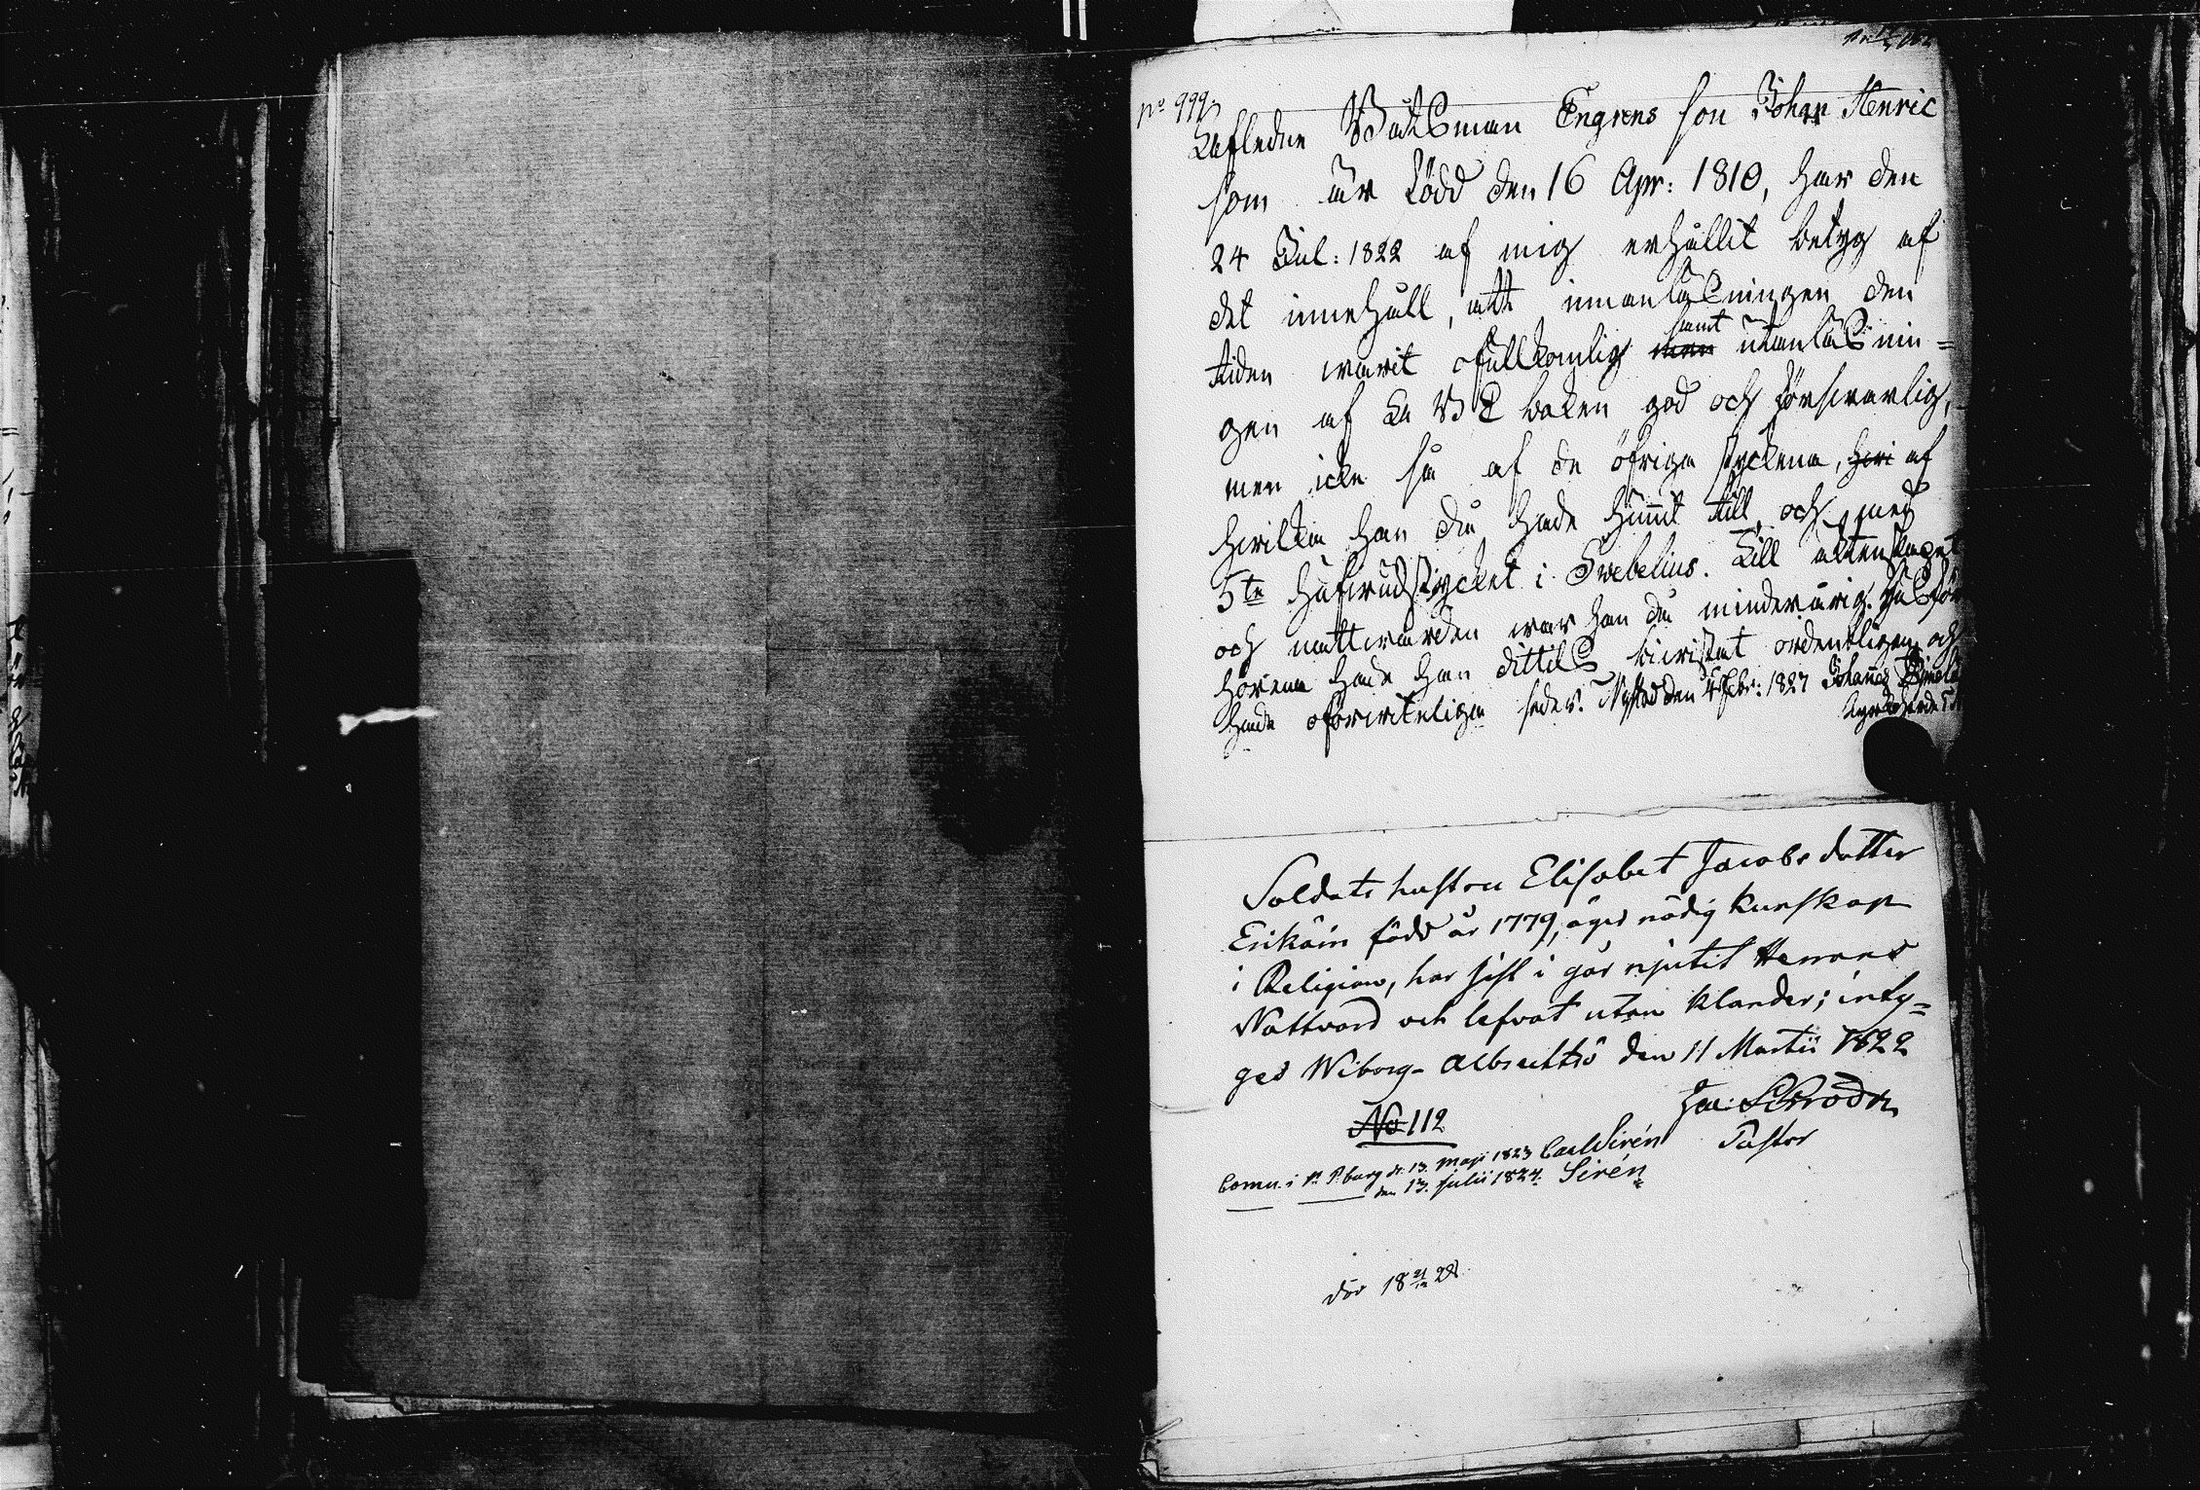 No 999.
Afledne Båtsman Engrens son Johan Henric
som är född den 16 Apr: 1810, har den
24 Jul: 1822 af mig erhållit betyg af
det innehåll, att innanläsningen den
tiden warit ofullkomlig men samt utanläsnin=
gen af A B C boken god och försvarlig,
men icke så af de öfriga styckena, hvi af
hvilka han då hade hunnit till och med
5te hufvudstycket i Svebelius. Till äktenskapet
och nattvarden war han då minderårig. Husför
hören hade han dittils bivistat ordentligen och
hade oförviteliga seder. Nystad den 4 Febr: 1827 Johannes
Kyrkoherde
Soldats hustru Elisabet Jacobsdotter
Erikäin född år 1779, äger nödig kunskap
i Religion, har sist i går njutit Herrans
Nattvard och lefvat utan klander; inty=
gas Wiborg- den 11 Martii 1822
Pastor
No 112
Comu. i St. P.burg d. 13. Maji 1823 Carl Sirén
den 13. Julii 1824. Sirén
död 18 21/12 28.